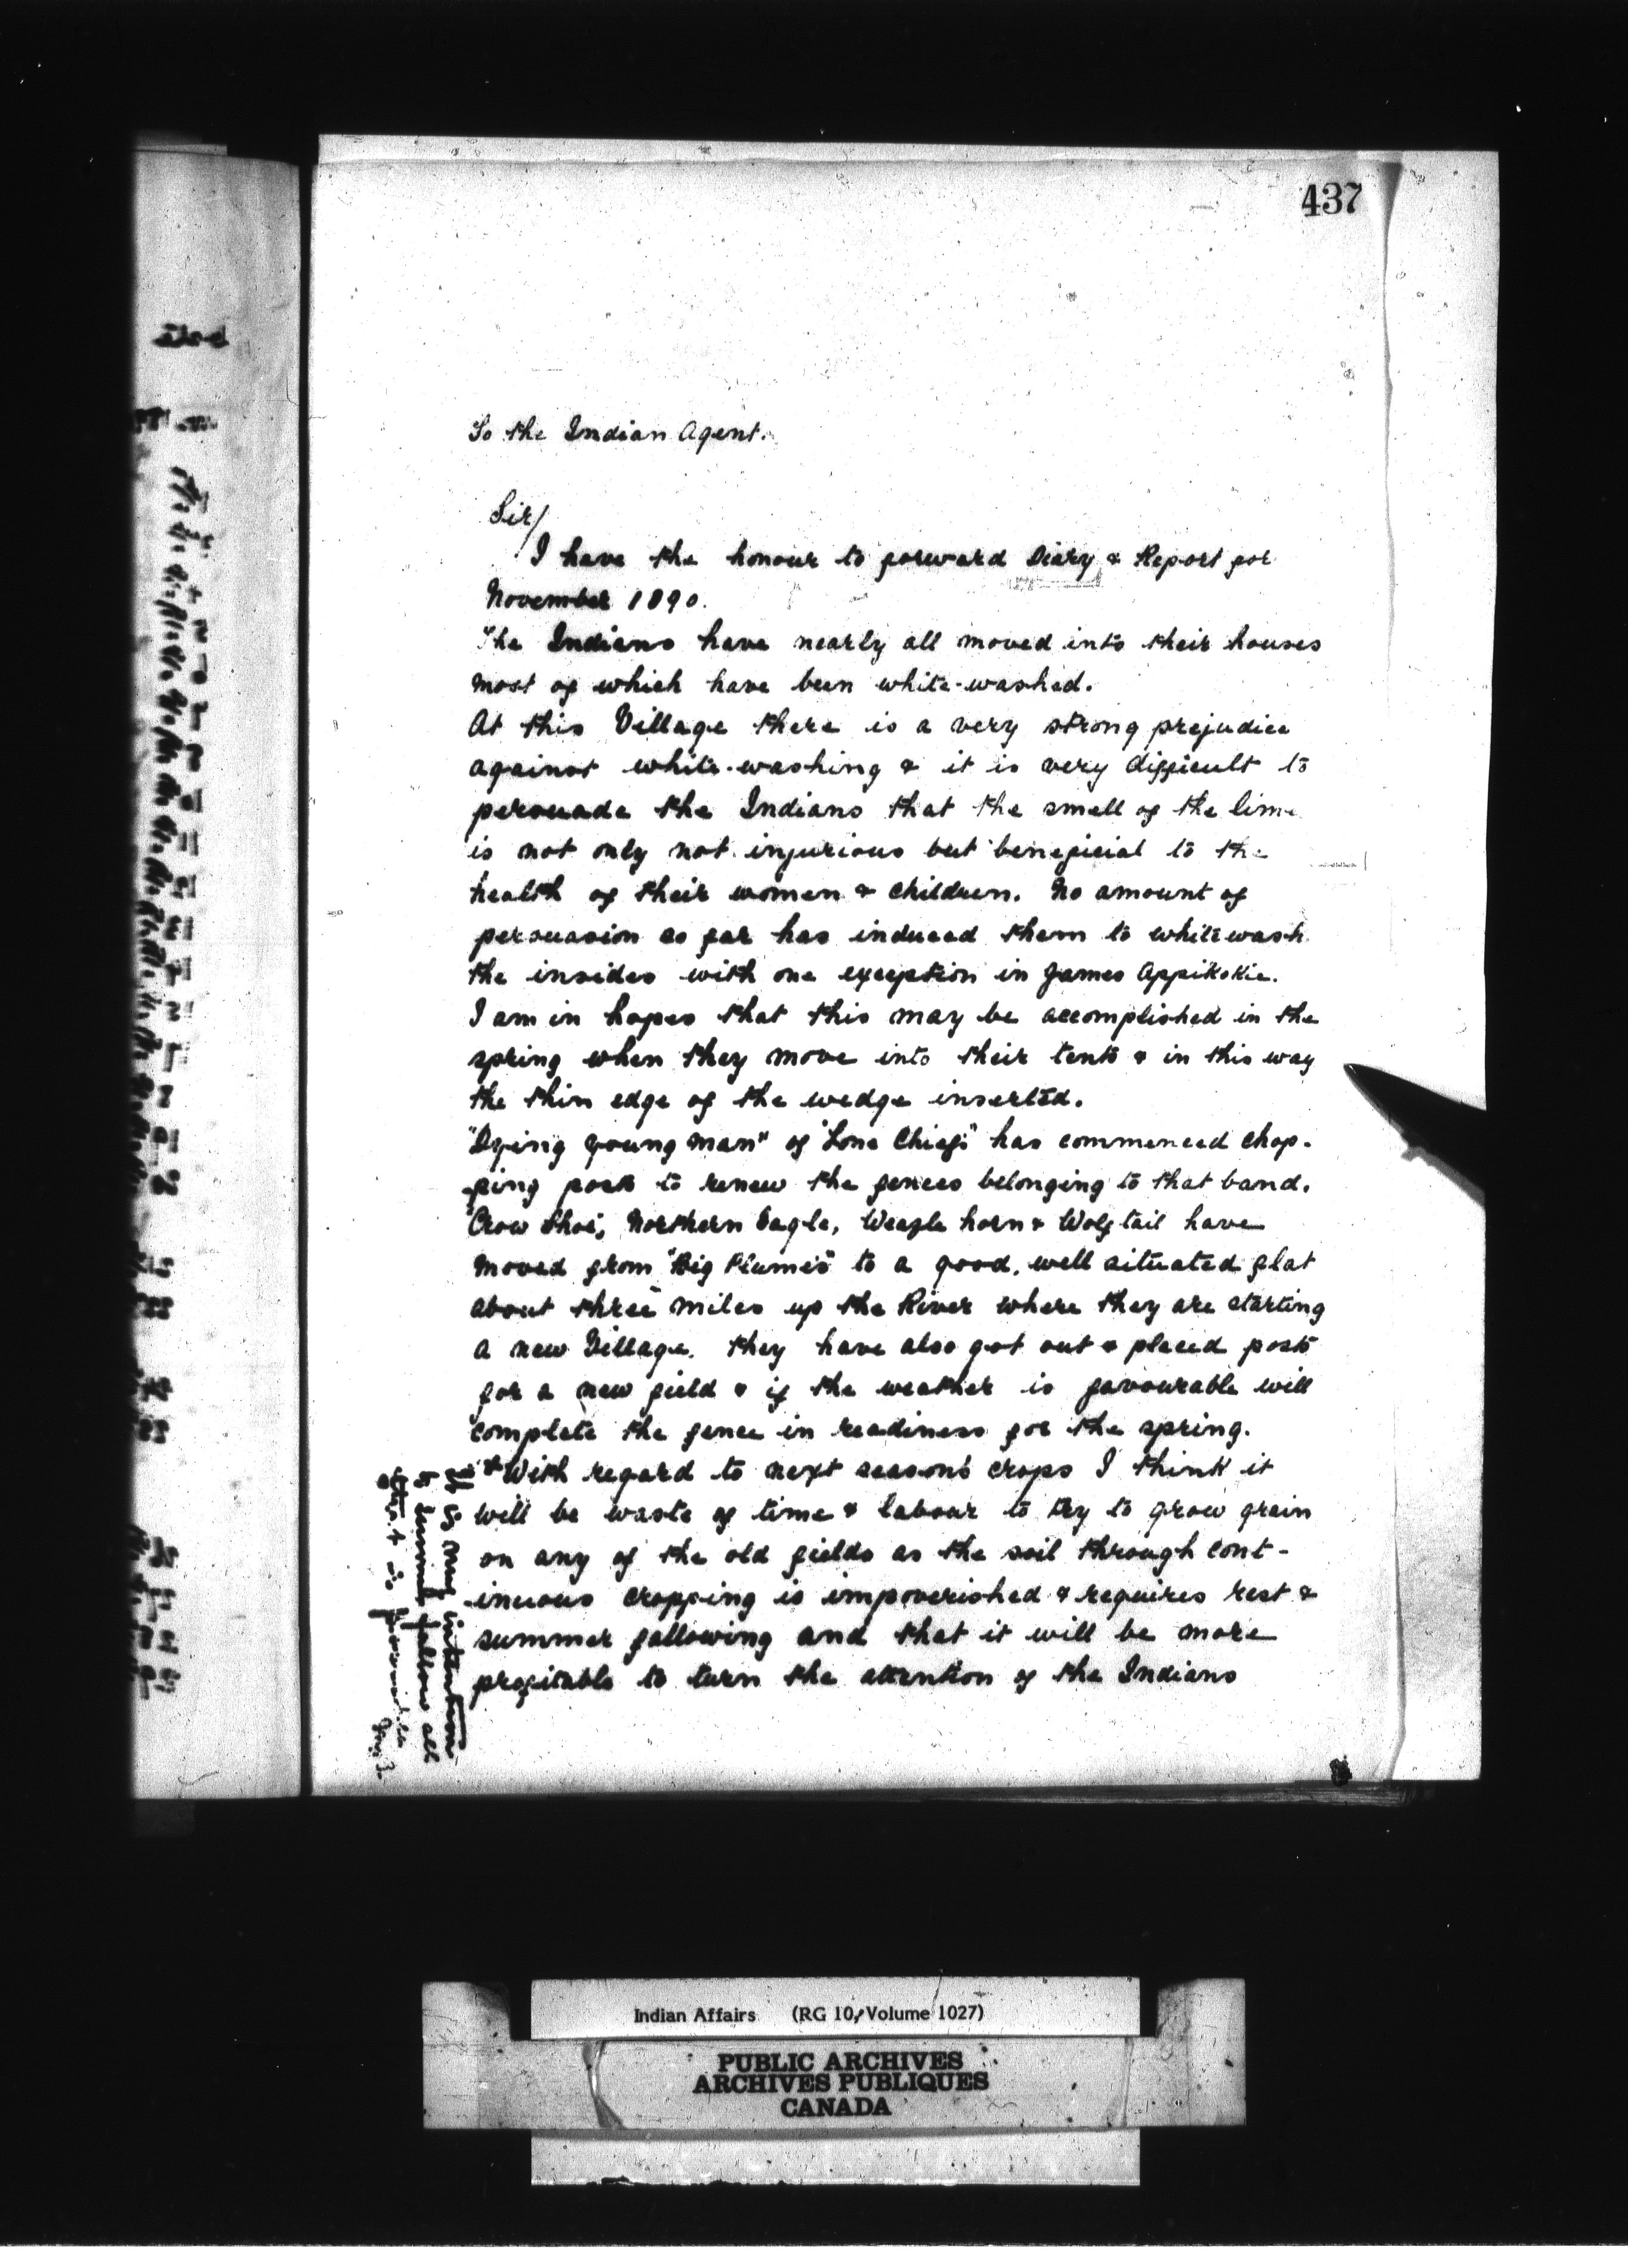 437
To the Indian Agent.
Sir/
I have the honour to forward Diary & Report for
November 1890.
The Indians have nearly all moved into their houses
most of which have been white-washed.
At this Village there is a very strong prejudice
against white-washing & it is very difficult to
persuade the Indians that the smell of the lime
is not only not injurious but beneficial to the
health of their women & children. No amount of
persuasion so far has induced them to whitewash
the insides with one exception in James Appikokie.
I am in hopes that this may be accomplished in the
spring when they move into their tents & in this way
the thin edge of the wedge inserted.
"Dying young man" of "Lone Chief's" has commenced chop-
-ping posts to renew the fences belonging to that band.
"Crow Shoe", Northern Eagle, Weazle horn & Wolf tail have
moved from "Big Plume's" to a good, well situated flat
about three miles up the River where they are starting
a new Village. They have also got out & placed posts
for a new field & if the weather is favourable will
complete the fence in readiness for the spring.
With regard to next season's crops I think it
will be waste of time & labour to try to grow grain
on any of the old fields as the soil through cont-
-inuous cropping is impoverished & requires rest &
summer fallowing and that it will be more
profitable to turn the attention of the Indians
It is my intention
to summer fallow all
that is
Indian Affairs (RG 10, Volume 1027)
PUBLIC ARCHIVES
ARCHIVES PUBLIQUES
CANADA